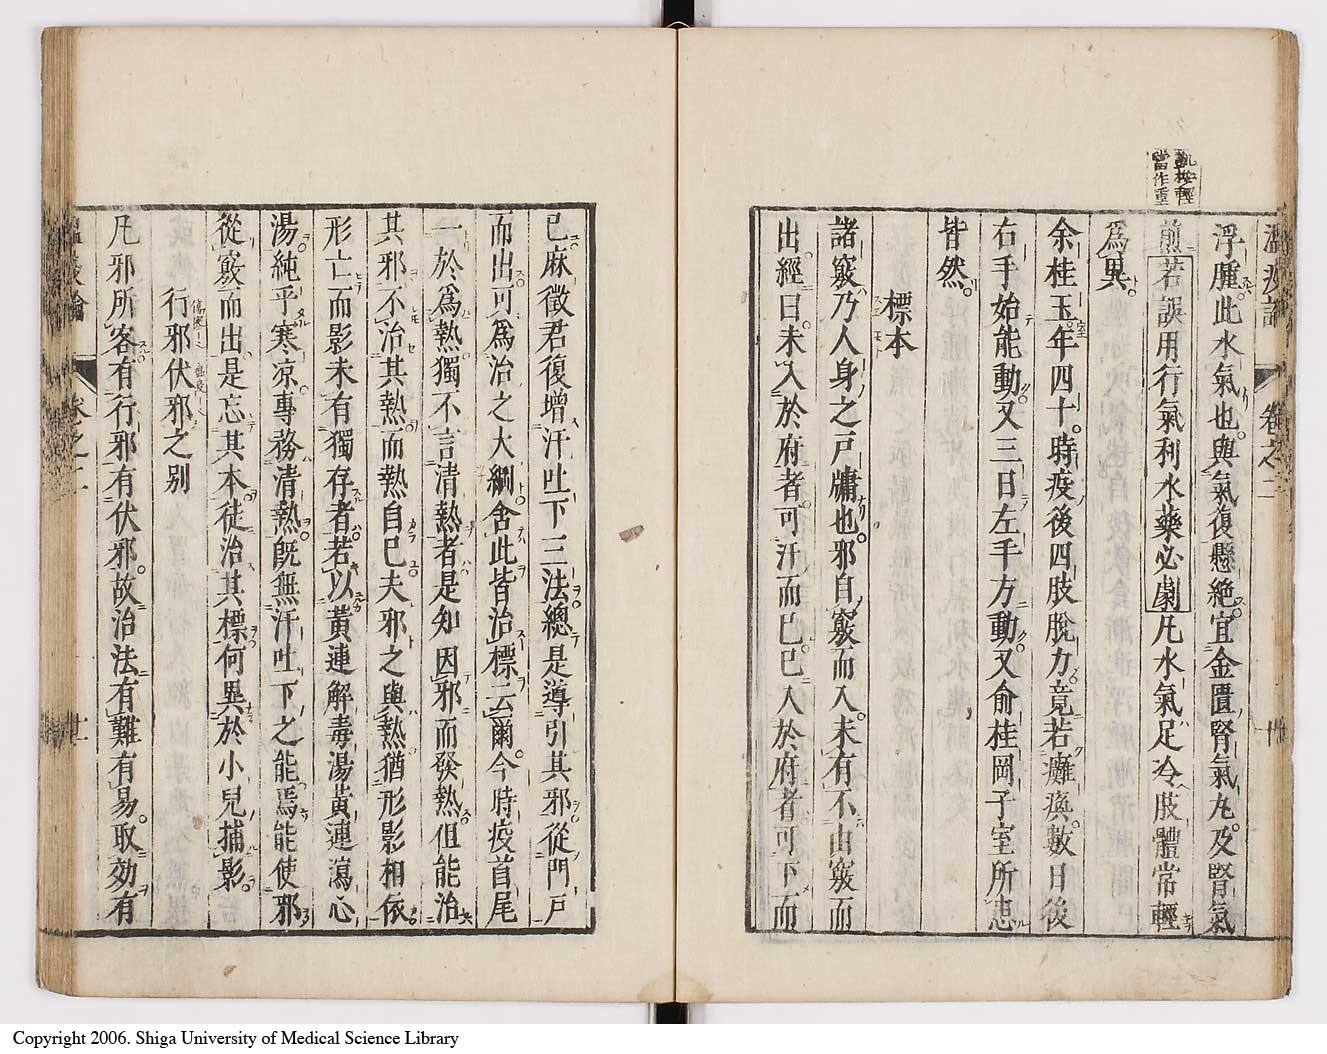 溫疫論 卷之二 卅
軏按輕
當作重
浮腫此水氣也與氣復懸絶宜金匱腎氣丸及腎氣
煎若誤用行氣利水藥必劇凡水氣足冷肢體常輕
爲異
余桂玉年四十時疫後四肢脫力竟若癱瘓數日後
右手始能動又三日左手方動又俞桂岡子室所患
皆然
標本
諸竅乃人身之戸牖也邪自竅而入未有不由竅而
出經曰未入於府者可汗而已已入於府者可下而
已麻徵君復增汗吐下三法總是導引其邪從門戸
而出可爲治之大綱舍此皆治標云爾今時疫首尾
一於爲熱獨不言清熱者是知因邪而發熱但能治
其邪不治其熱而熱自已夫邪之與熱猶形影相依
形亡而影未有獨存者若以黃連解毒湯黃連瀉心
湯純乎寒凉專務清熱旣無汗吐下之能焉能使邪
從竅而出是忘其本徒治其標何異於小兒捕影
行邪伏邪之别
凡邪所客有行邪有伏邪故治法有難有易取効有
溫疫論 卷之二 卄一
Copyright 2006. Shiga University of Medical Science Library